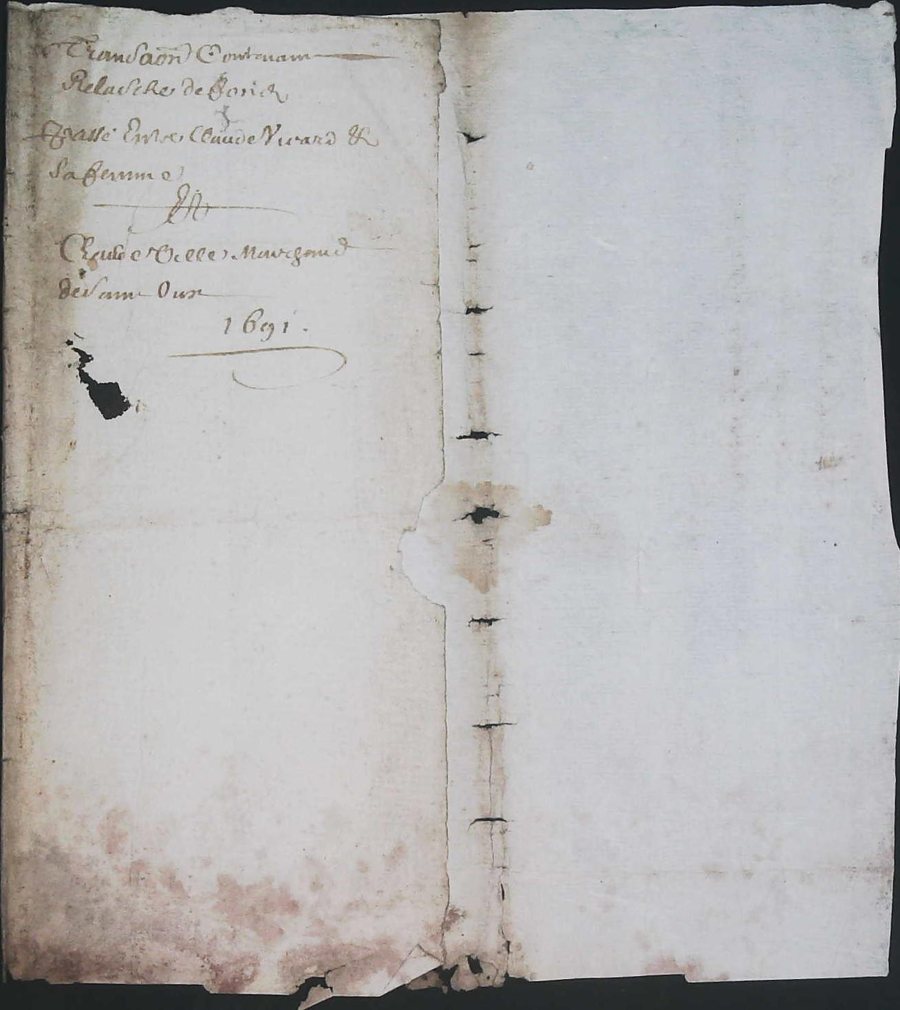 Transaõn Contenant
Relasche de fond
Passé Entre Claude Vicard &
Sa femme
Et
Claude Velle Marchand
de Saint Ours
1691.